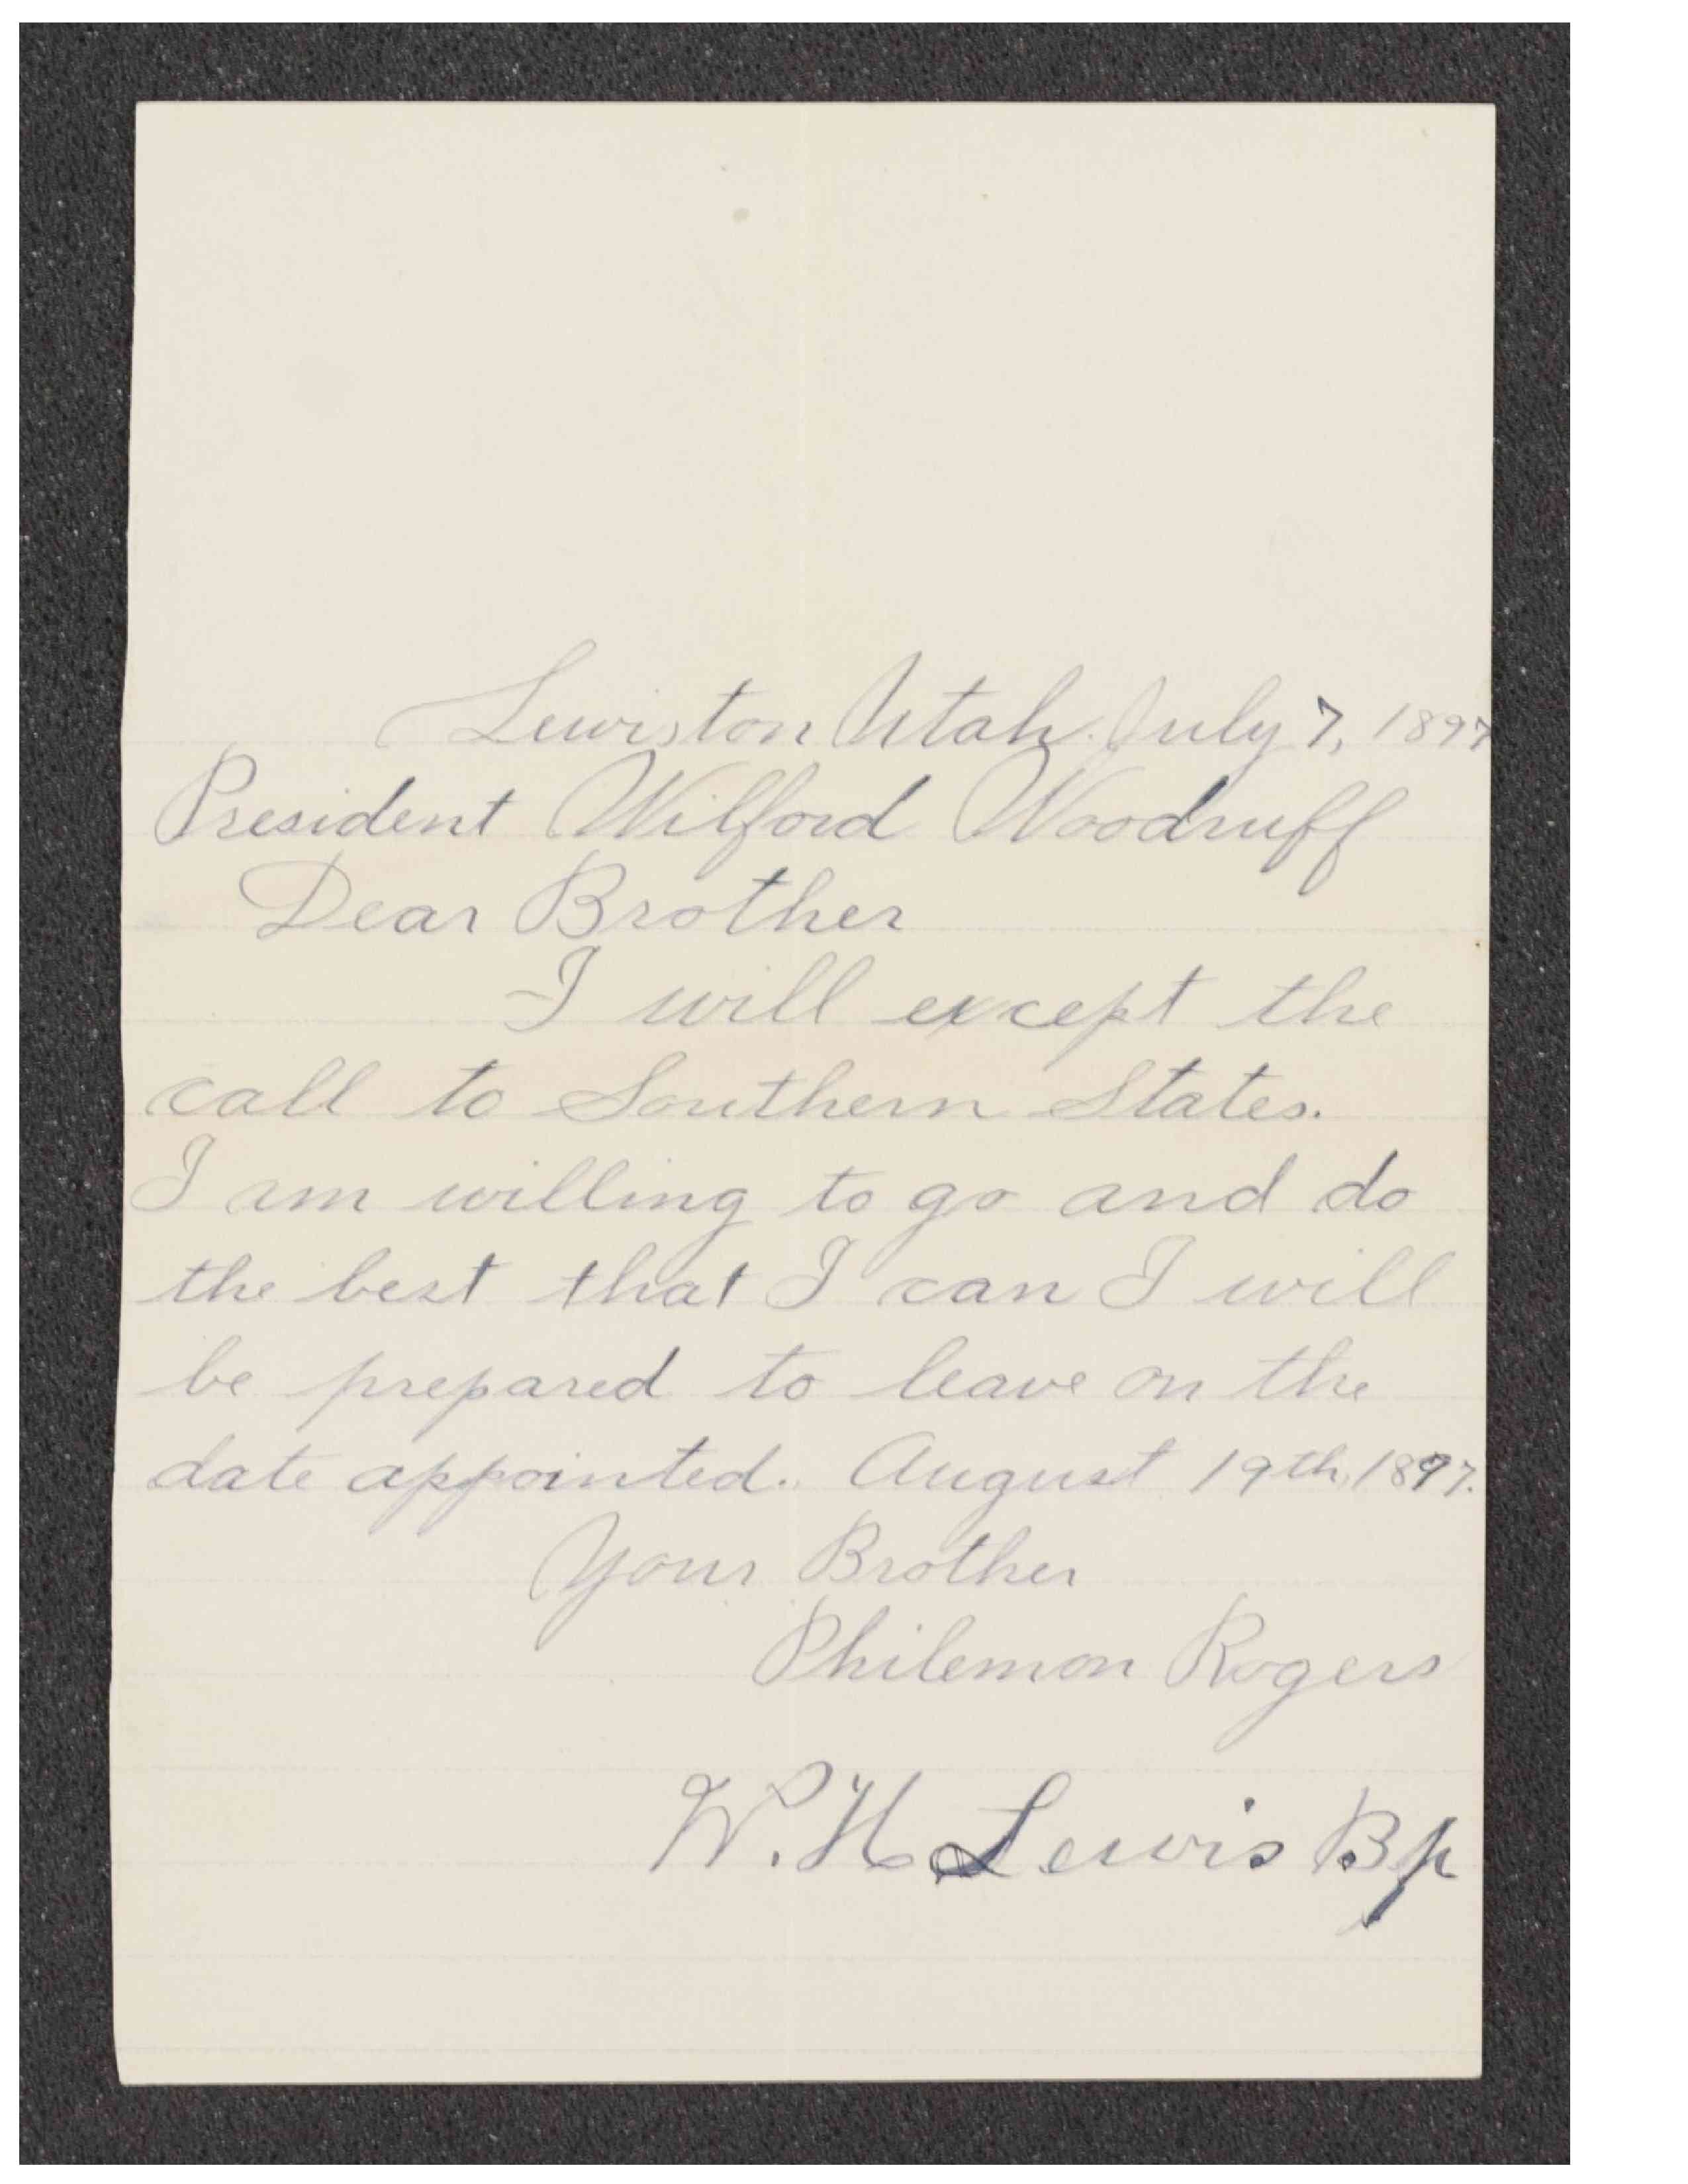 Lewiston Utah. July 7, 1897
President Wilford Woodruff
Dear Brother
I will except the
call to Southern States.
I am willing to go and do
the best that I can I will
be prepared to leave on the
date appointed. August 19th, 1897.
Your Brother
Philemon Rogers
W. H Lewis Bp